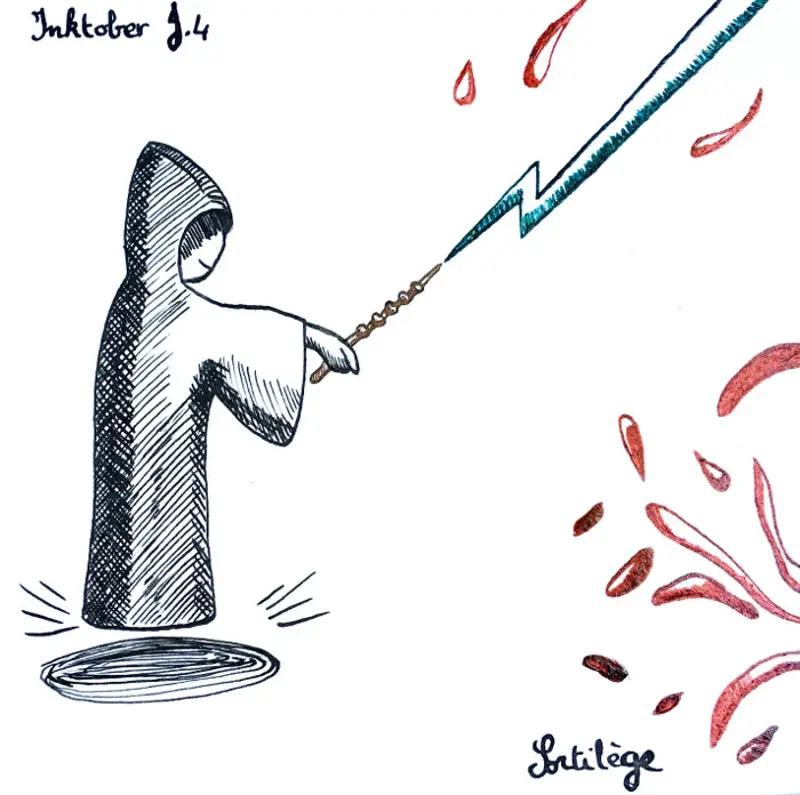 Inktober J.4
Sortilège